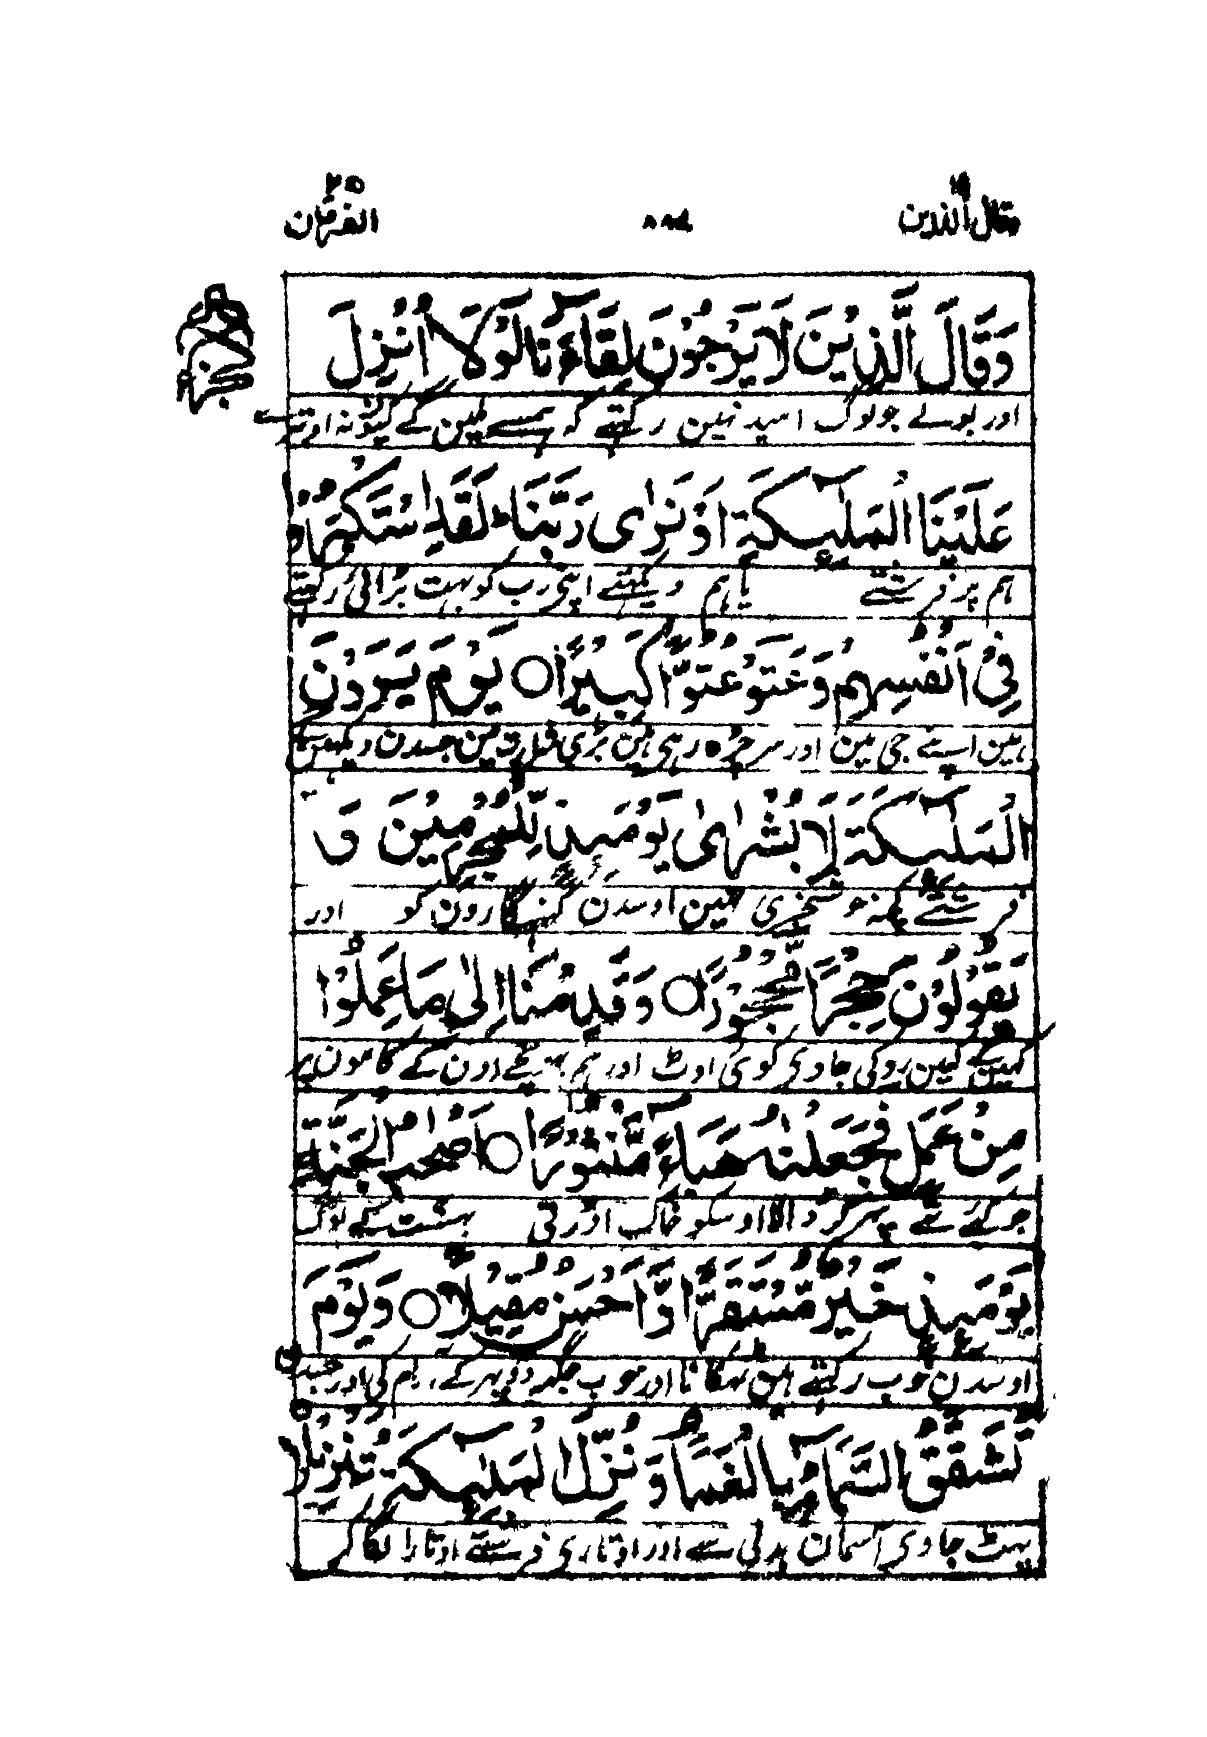 وقال الذين ۱۹
۸۸۴
الفرقان ۲۵
وَقَالَ الَّذِيْنَ لَا يَرْجُوْنَ لِقَاۤءَنَا لَوْلَاۤ اُنْزِلَ
اور بولے جو لوگ امید نہین رکھتے کہ ہمسے ملین گے کیون نہ اوترے
عَلَيْنَا الْمَلٰۤىِٕكَةُ اَوْ نَرٰى رَبَّنَا ؕ لَقَدِ اسْتَكْبَرُوْا
ہم پر فرشتے یا ہم دیکھتے اپنی رب کو بہت بڑائی رکھتے
فِىْۤ اَنْفُسِهِمْ وَعَتَوْ عُتُوًّا كَبِيْرًا ○ يَوْمَ يَرَوْنَ
ہین اپنے جی مین اور سر چڑہ رہی ہین بڑی شرارت مین جسدن دیکھین گے
الْمَلٰۤىِٕكَةَ لَا بُشْرٰى يَوْمَىِٕذٍ لِّلْمُجْرِمِيْنَ وَ
فرشتے کچھ خوشخبری نہین اوسدن گنہگارون کو اور
يَقُوْلُوْنَ حِجْرًا مَّحْجُوْرًا ○ وَقَدِمْنَاۤ اِلٰى مَا عَمِلُوْا
کہین گے کہین روکی جاوی کوئی اوٹ اور ہم پہنچے اون کے کامون پر
مِنْ عَمَلٍ فَجَعَلْنٰهُ هَبَاۤءً مَّنْثُوْرًا ○ اَصْحٰبُ الْجَنَّةِ
جو کئے تھے پہر کر ڈالا اوسکو خاک اوڑتی بہشت کے لوگ
يَوْمَىِٕذٍ خَيْرٌ مُّسْتَقَرًّا وَّاَحْسَنُ مَقِيْلًا ○ وَيَوْمَ
اوسدن خوب رکھتے ہین ٹھکانا اور خوب جگہ دوپہر کے آرام کی اور جسدن
تَشَقَّقُ السَّمَاۤءُ بِالْغَمَامِ وَنُزِّلَ الْمَلٰۤىِٕكَةُ تَنْزِيْلًا
پہٹ جاوی آسمان بدلی سے اور اوتاری فرشتے اوتارا لگا کر